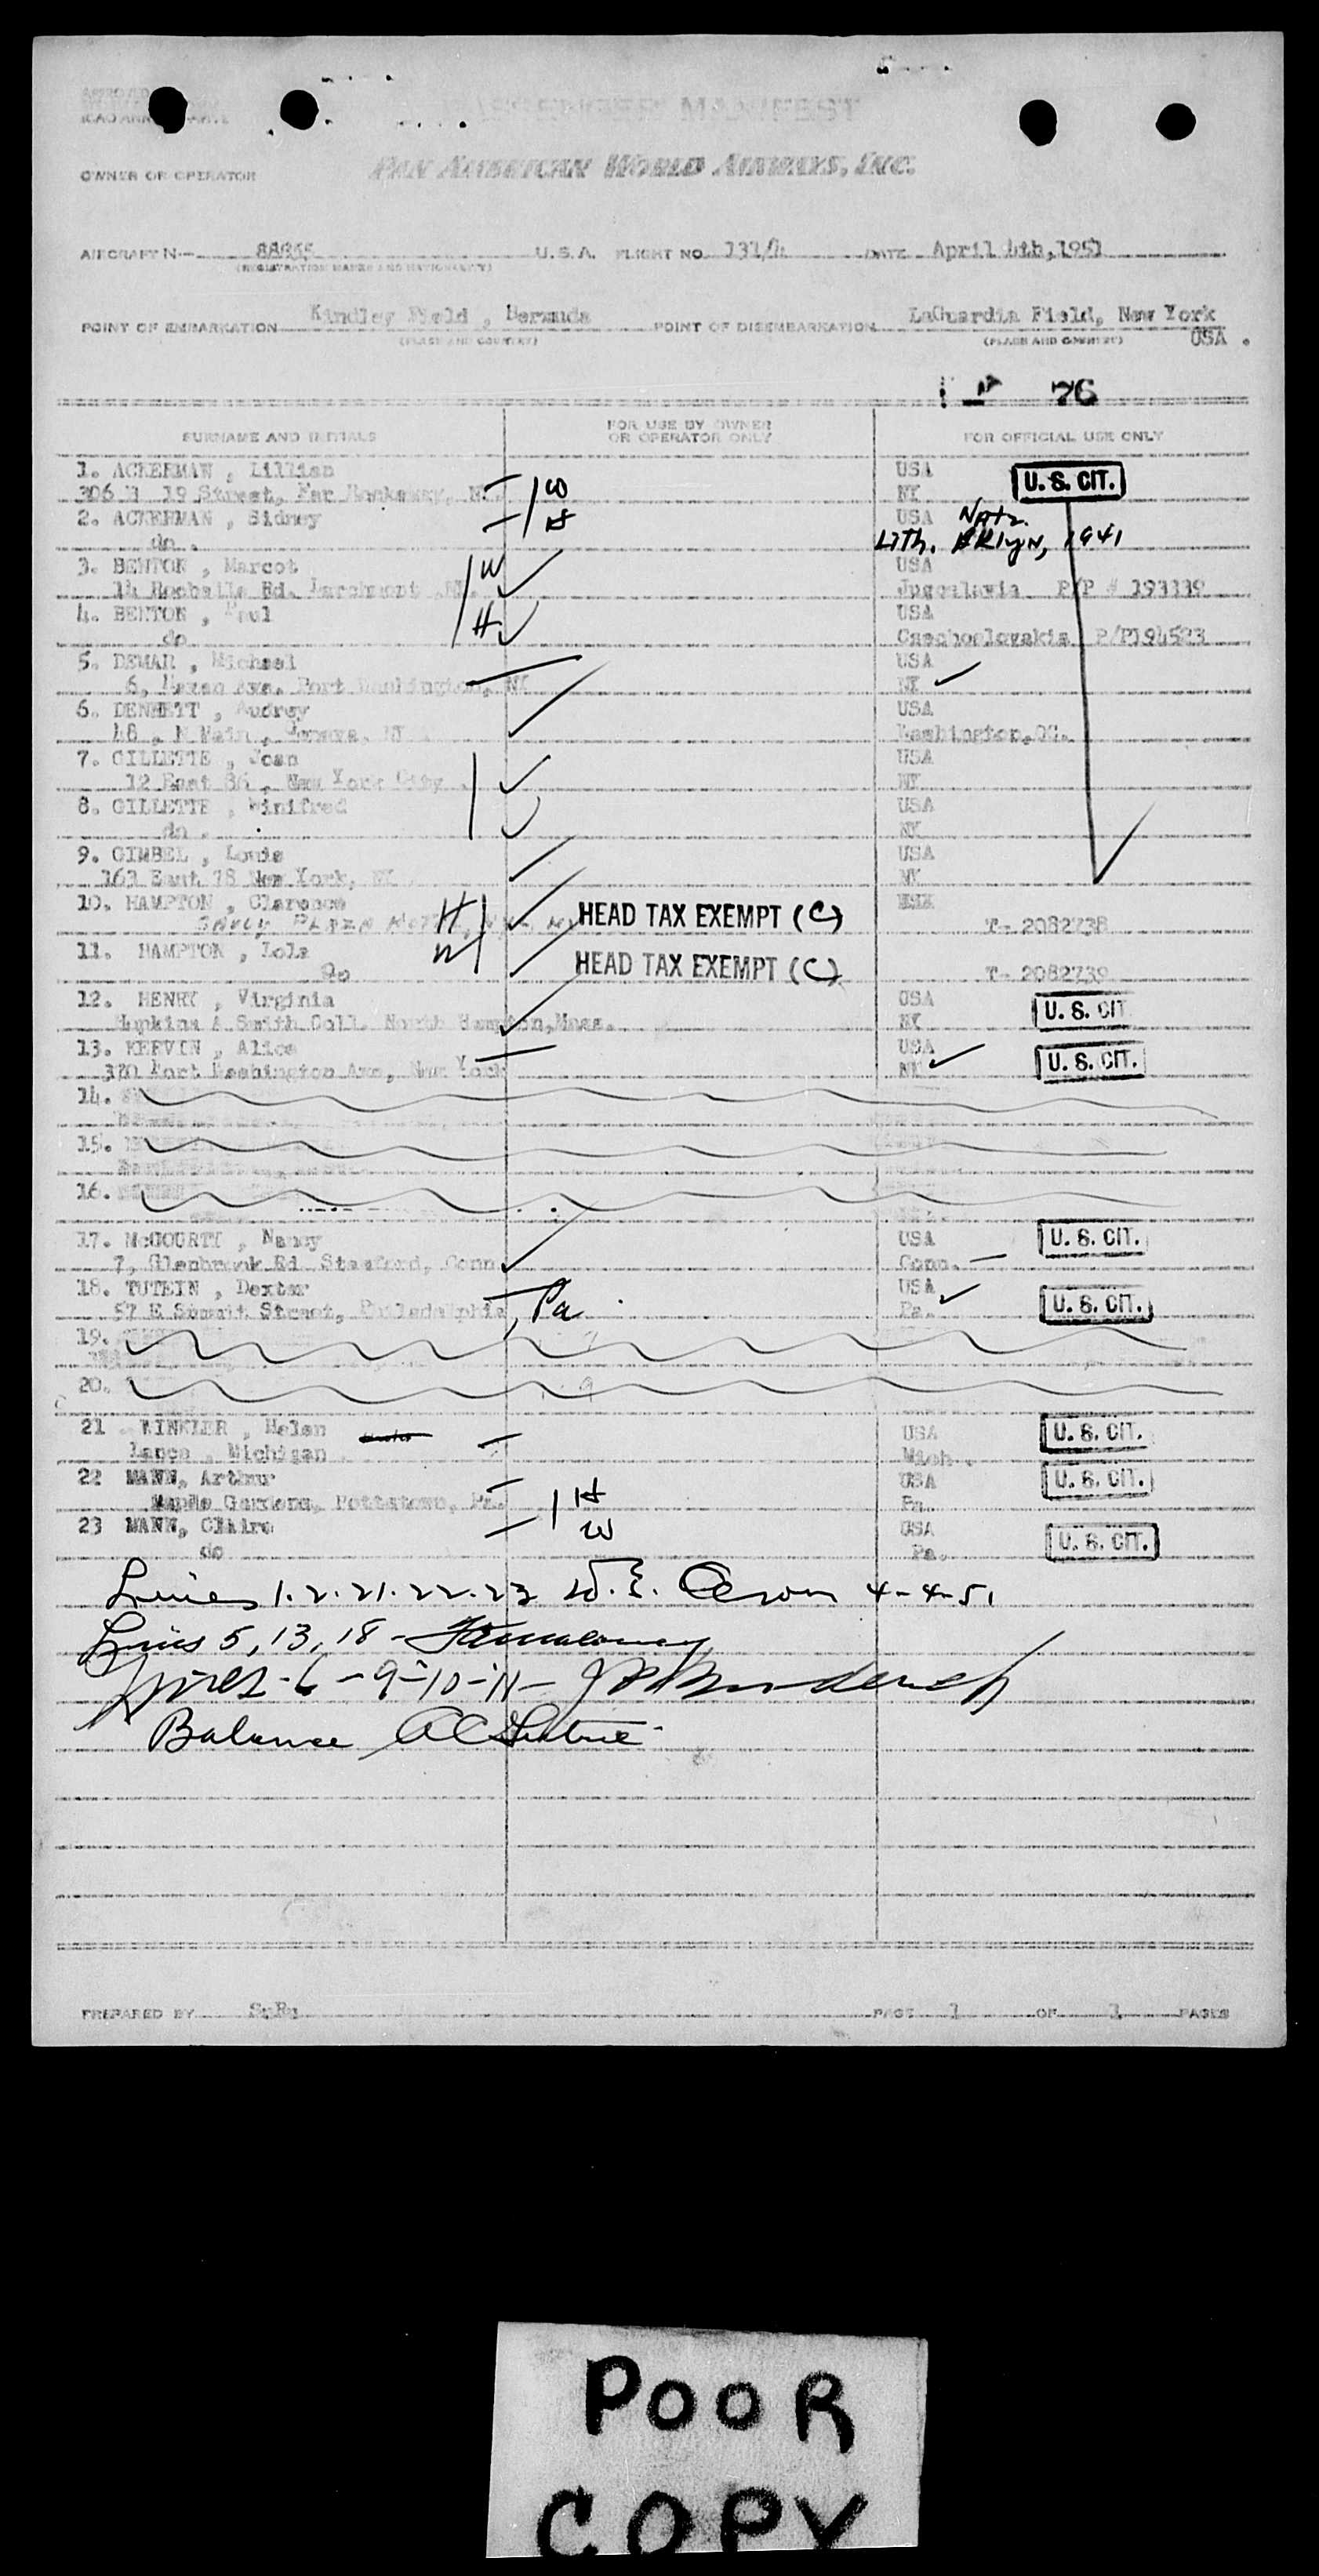 PASSENGER MANIFEST
PAN AMERICAN WORLD AIRWAYS, INC.
OWNER OR OPERATOR
AIRCRAFT N— U.S.A. FLIGHT NO. 131/4 DATE April 4th, 1951
(REGISTRATION MARKS AND NATIONALITY)
POINT OF EMBARKATION Kindley Field , Bermuda POINT OF DISEMBARKATION LaGuardia Field, New York
(PLACE AND COUNTRY) (PLACE AND COUNTRY) USA .
76
SURNAME AND INITIALS FOR USE BY OWNER OR OPERATOR ONLY FOR OFFICIAL USE ONLY
1. ACKERMAN , Lillian USA
19 Street, Far NY W U. S. CIT.
2. ACKERMAN , Sidney H USA Natz.
do . Lith. BKlyn, 1941
3. BENTON , Margot W USA
14 Rochelle Rd. Larchmont P/P # 193339
4. BENTON , Paul H USA
do P/P194523
5. DEMAR , Michael USA
6, Ave. Port Washington, NY NY
6. DENNETT , Audrey USA
48 , N Main , NY Washington,DC.
7. GILLETTE , Joan USA
12 East 86 , New York City NY
8. GILLETTE , Winifred USA
do . NY
9. GIMBEL , Louis USA
163 East 78 New York, NY NY
10. HAMPTON , Clarence H HEAD TAX EXEMPT (C)
T- 2082738
11. HAMPTON , Lola W HEAD TAX EXEMPT (C)
Do T- 2082739
12. HENRY , Virginia USA U. S. CIT
Hopkins A Smith Coll. North Hampton,Mass. NY
13. KERVIN , Alice USA
Fort Washington Ave, New York NY U. S. CIT.
14.
15.
16.
17. McGOURTY , Nancy USA U. S. CIT.
7, Glenbrook Rd Conn. Conn.
18. TUTEIN , Dexter USA
E Street, Philadelphia , Pa Pa. U. S. CIT.
19.
20.
21 WINKLER , Helen USA U. S. CIT.
Lance , Michigan Mich .
22 MANN, Arthur USA U. S. CIT.
Gardens, Pottstown, Pa. H Pa.
23 MANN, Claire W USA
do Pa. U. S. CIT.
Lines 1. 2. 21. 22. 23 W.E. 4-4-51
Lines 5, 13, 18 -
Lines - 6 - 9 - 10 - 11 -
Balance
PREPARED BY PAGE 1 OF 1 PAGES
POOR
COPY